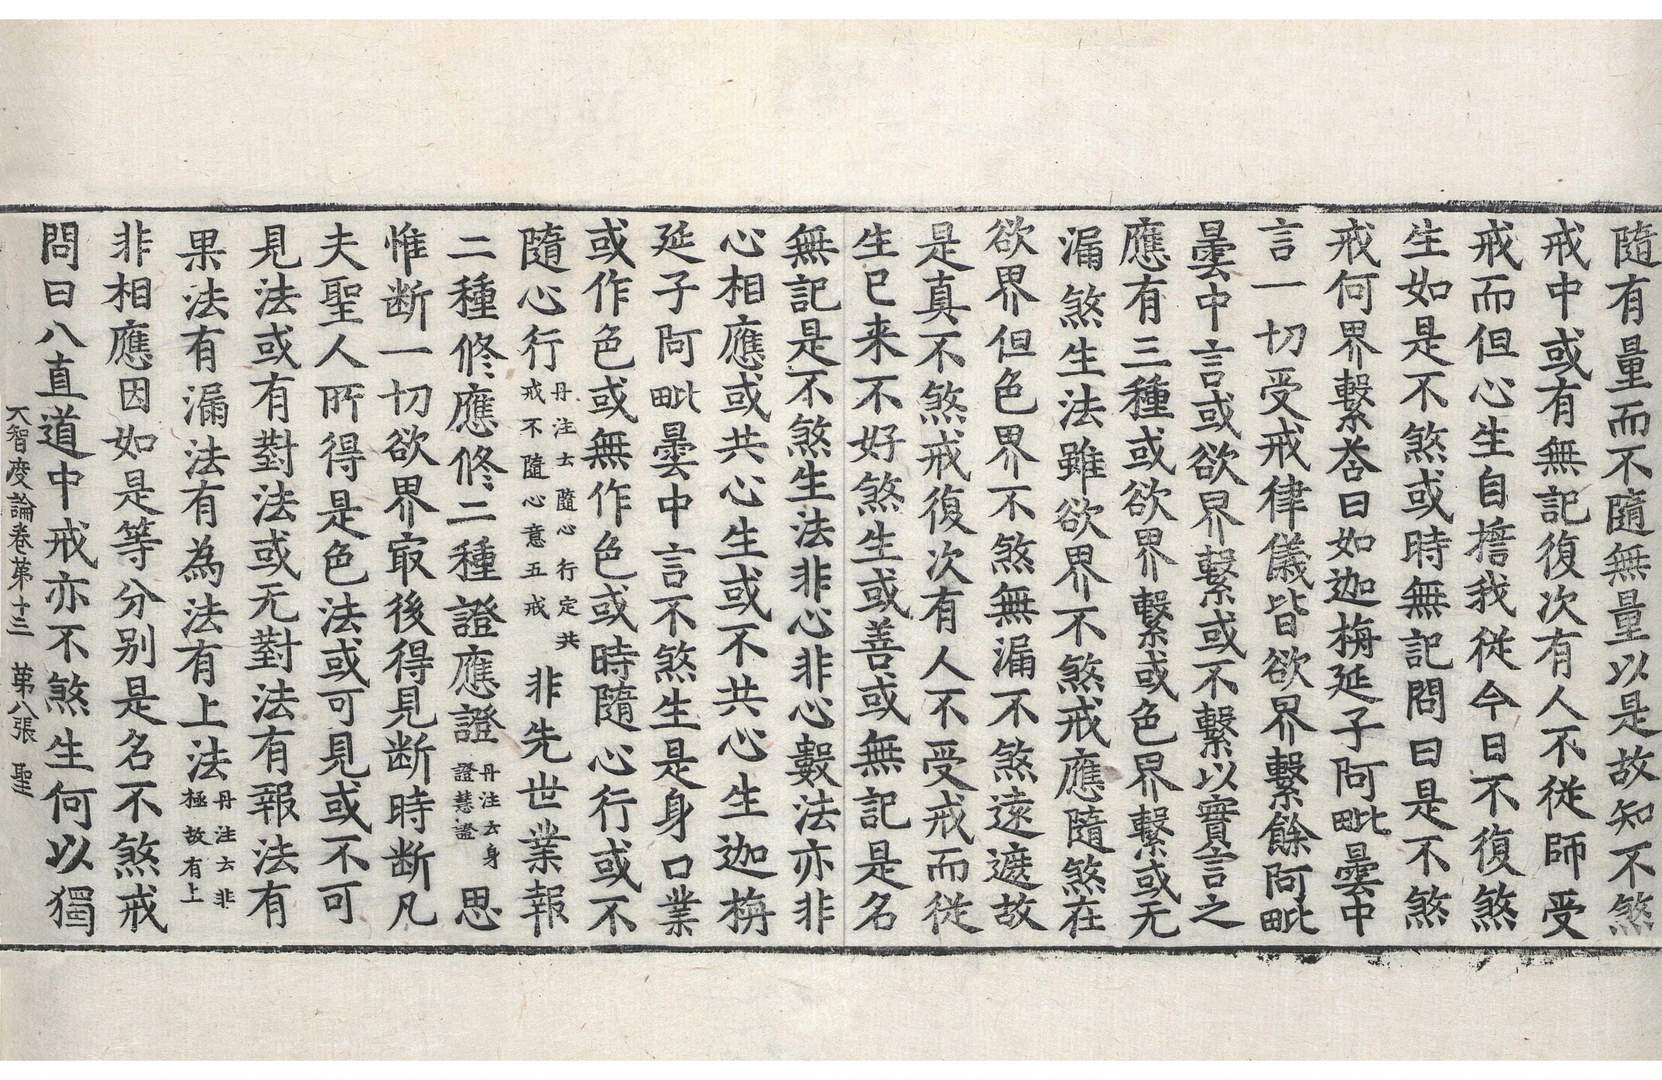 隨有量而不隨無量以是故知不煞
戒中或有無記復次有人不従師受
戒而但心生自擔我従今日不復煞
生如是不煞或時無記問曰是不煞
戒何界繫荅曰如迦栴延子阿毗曇中
言一切受戒律儀皆欲界繫餘阿毗
曇中言或欲界繫或不繫以實言之
應有三種或欲界繫或色界繫或无
漏煞生法雖欲界不煞戒應隨煞在
欲界但色界不煞無漏不煞遠遮故
是真不煞戒復次有人不受戒而従
生已来不好煞生或善或無記是名
無記是不煞生法非心非心數法亦非
心相應或共心生或不共心生迦栴
延子阿毗曇中言不煞生是身口業
或作色或無作色或時隨心行或不
隨心行丹注云隨心行定共戒不隨心意五戒非先世業報
二種修應修二種證應證丹注云身證慧證思
惟断一切欲界㝡後得見断時断凡
夫聖人所得是色法或可見或不可
見法或有對法或无對法有報法有
果法有漏法有為法有上法丹注云非極故有上
非相應因如是等分别是名不煞戒
問曰八直道中戒亦不煞生何以獨
大智度論卷苐十三 苐八張 聖